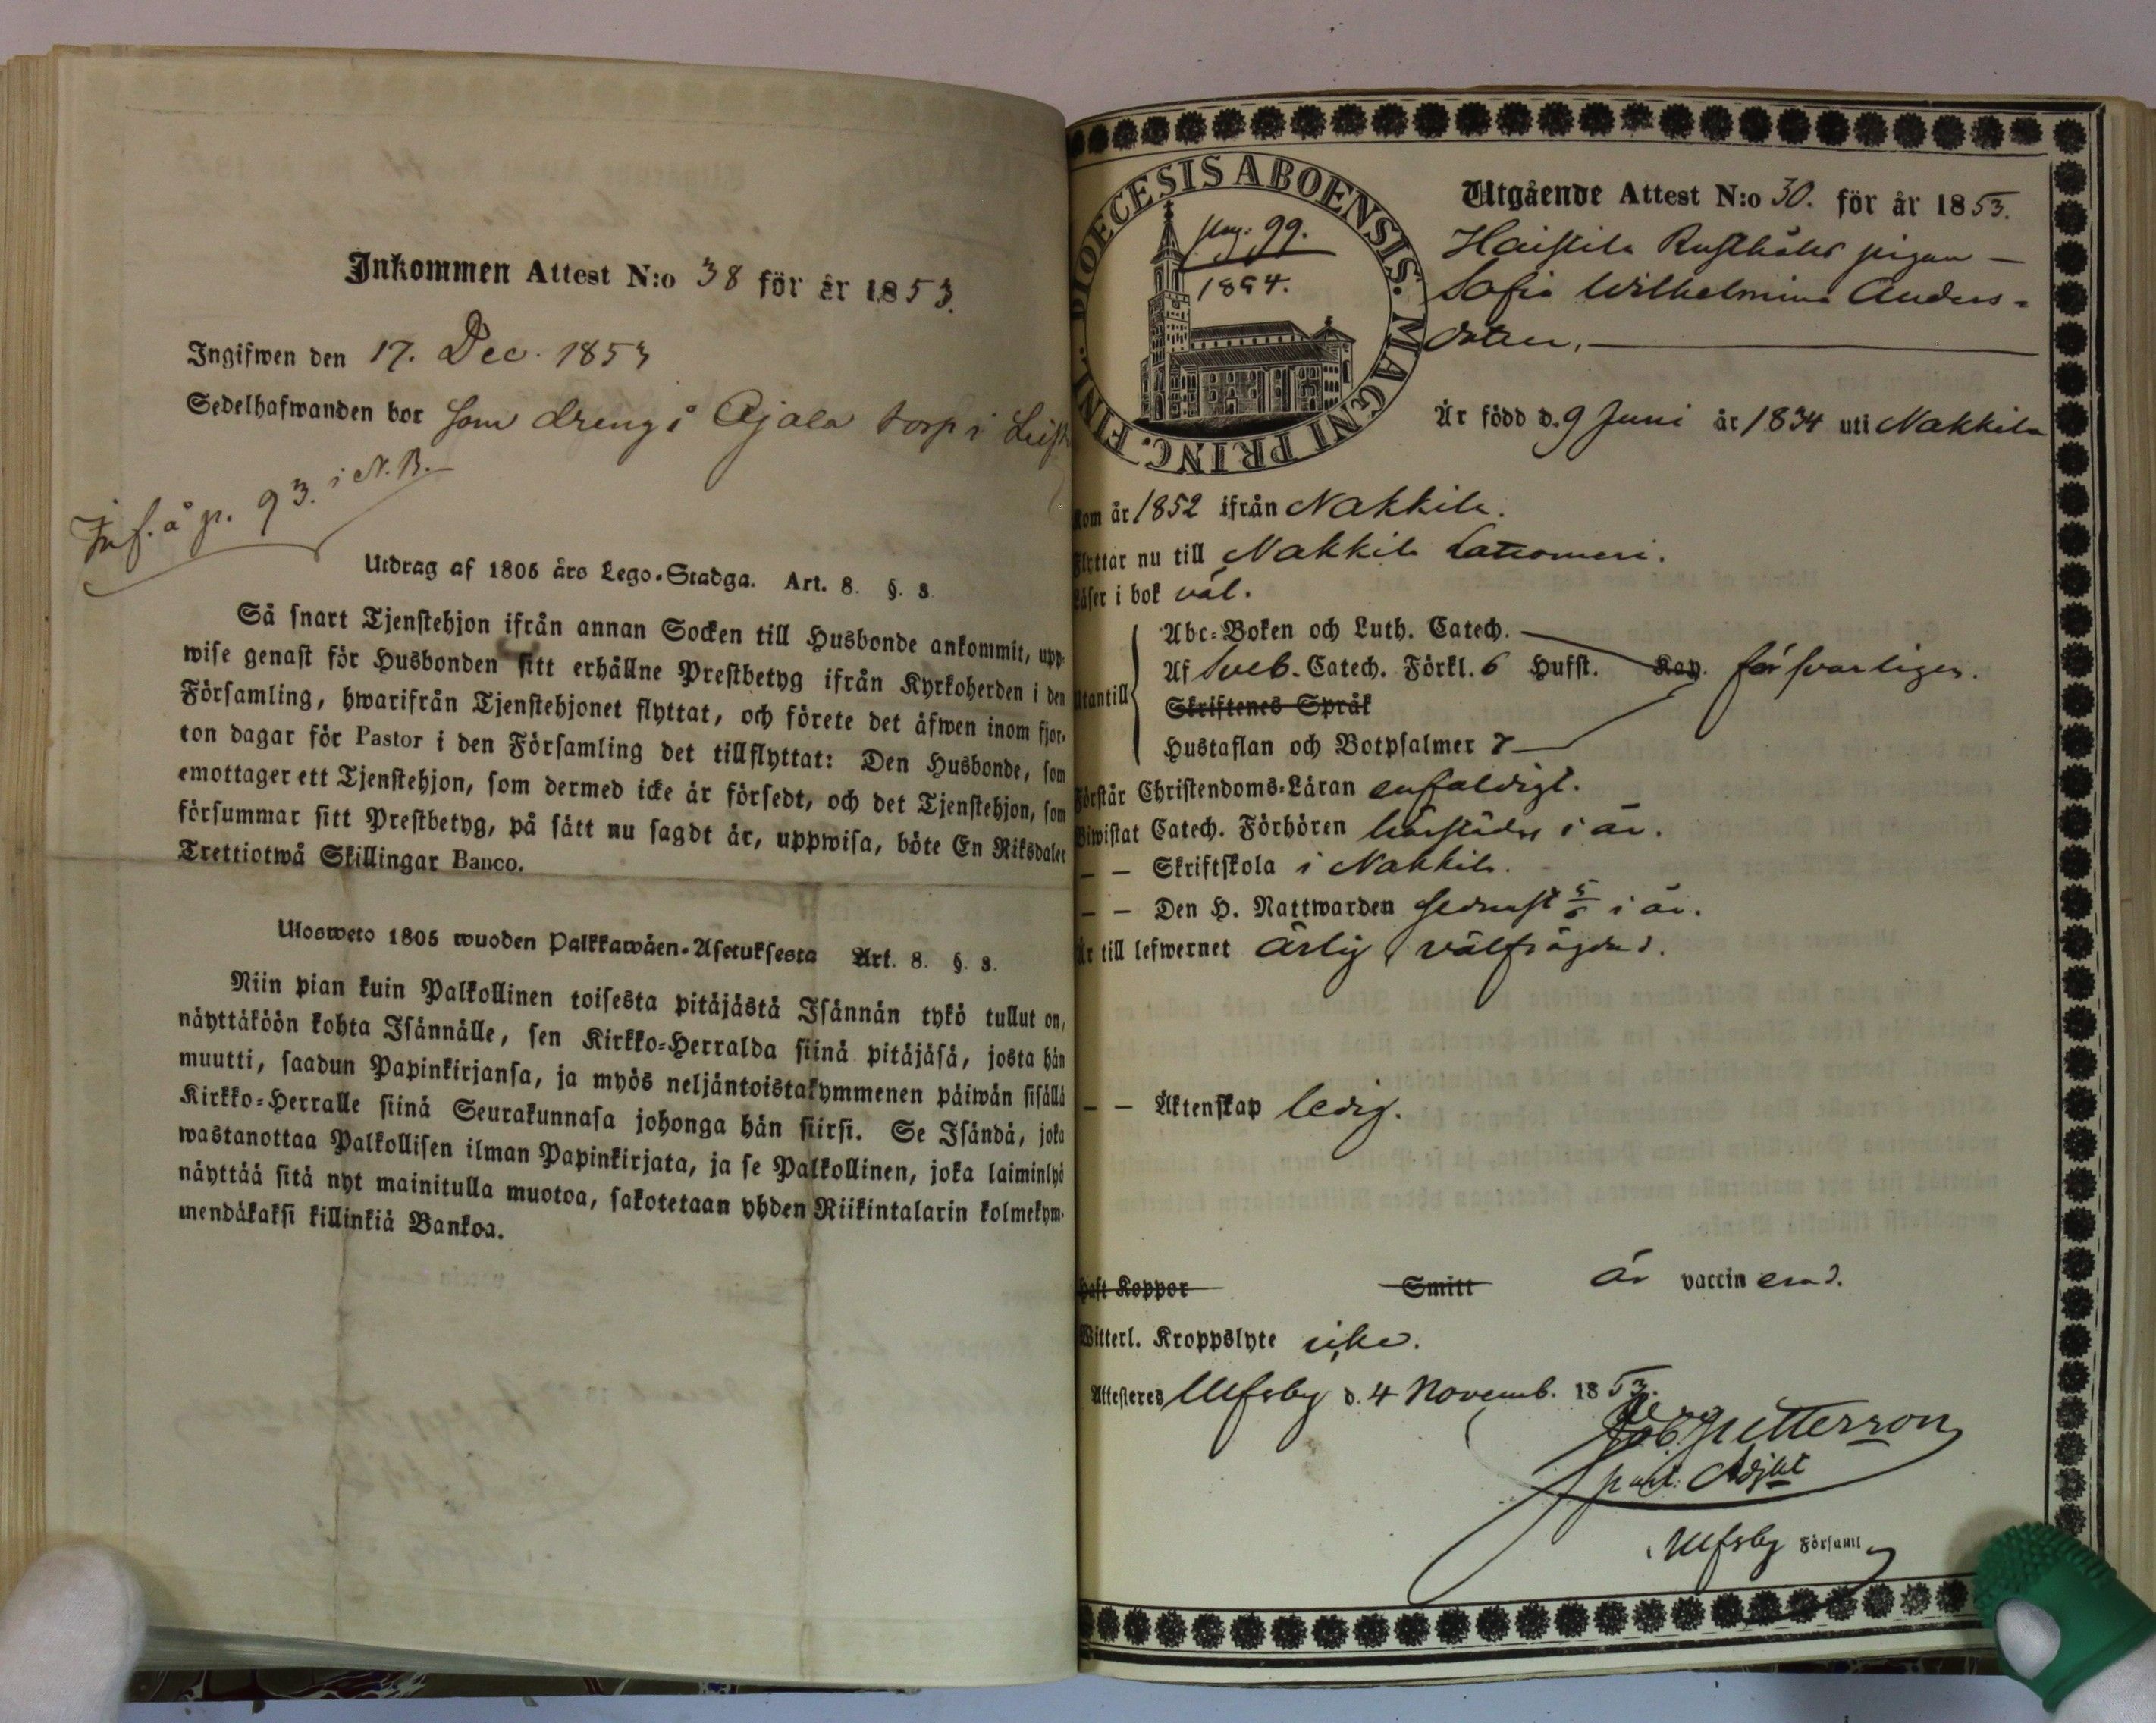 Inkommen Attest N:o 38 för år 1853.
Ingifwen den 17. Dec. 1853
Sedelhafwanden bor som dreng å Ojala torp i
Inf. å p. 93. i N. B.
Utdrag af 1805 års Lego-Stadga. Art. 8. §. 8.
Så snart Tjenstehjon ifrån annan Socken till Husbonde ankommit, upp-
wise genast för Husbonden sitt erhållne Prestbetyg ifrån Kyrkoherden i den
Församling, hwarifrån Tjenstehjonet flyttat, och förete det äfwen inom fjor-
ton dagar för Pastor i den Församling det tillflyttat: Den Husbonde, som
emottager ett Tjenstehjon, som dermed icke är försedt, och det Tjenstehjon, som
försummar sitt Prestbetyg, på sätt nu sagdt är, uppwisa, böte En Riksdaler
Trettiotwå Skillingar Banco.
Ulosweto 1805 wuoden Palkkawäen-Asetuksesta Art. 8. §. 8.
Niin pian kuin Palkollinen toisesta pitäjästä Isännän tykö tullut on,
näyttäköön kohta Isännälle, sen Kirkko-Herralda siinä pitäjäsä, josta hän
muutti, saadun Papinkirjansa, ja myös neljäntoistakymmenen päiwän sisällä
Kirkko-Herralle siinä Seurakunnasa johonga hän siirsi. Se Isändä, joka
wastanottaa Palkollisen ilman Papinkirjata, ja se Palkollinen, joka laiminlyö
näyttää sitä nyt mainitulla muotoa, sakotetaan yhden Riikintalarin kolmekym-
mendäkaksi killinkiä Bankoa.
DIOECESIS ABOENSIS. MAGNI PRINC. FINL.
pag. 99.
1854.
Utgående Attest N:o 30. för år 1853.
Haistila Rusthålls pigan —
Sofia Wilhelmina Anders-
dotter, —
Är född d. 9 Juni år 1834 uti Nakkila
kom år 1852 ifrån Nakkila.
Flyttar nu till Nakkila Lattomeri.
Läser i bok väl.
Utantill
Abc-Boken och Luth. Catech. —
Af Sveb. Catech. Förkl. 6 Hufst. Kap. försvarligen.
Skriftenes Språk
Hustaflan och Botpsalmer 7 —
Förstår Christendoms-Läran enfaldigt.
Biwistat Catech. Förhören härstädes i år.
— — Skriftskola i Nakkila.
— — Den H. Nattwarden sednast 5/6 i år.
Är till lefwernet ärlig, välfrägdad.
— — Äktenskap ledig.
Haft Koppor Smitt är vaccinerad.
Witterl. Kroppslyte icke.
Attesteras Ulfsby d. 4 Novemb. 1853.
Petterson
past. Adjkt
i Ulfsby Församl